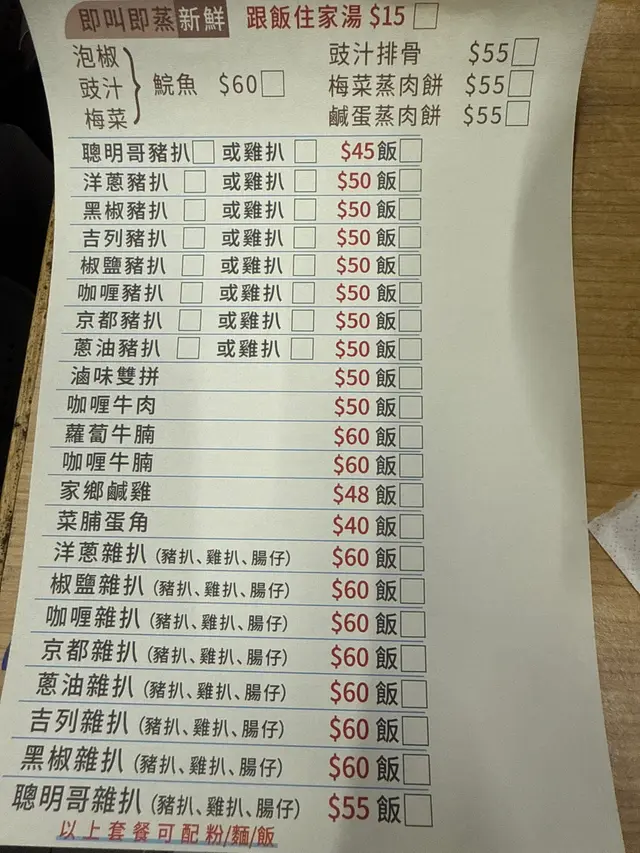 即叫即蒸新鮮 跟飯住家湯 $15
泡椒 豉汁排骨 $55
豉汁 鯇魚 $60 梅菜蒸肉餅 $55
梅菜 鹹蛋蒸肉餅 $55
聰明哥豬扒 或雞扒 $45飯
洋蔥豬扒 或雞扒 $50飯
黑椒豬扒 或雞扒 $50飯
吉列豬扒 或雞扒 $50飯
椒鹽豬扒 或雞扒 $50飯
咖喱豬扒 或雞扒 $50飯
京都豬扒 或雞扒 $50飯
蔥油豬扒 或雞扒 $50飯
滷味雙拼 $50飯
咖喱牛肉 $50飯
蘿蔔牛腩 $60飯
咖喱牛腩 $60飯
家鄉鹹雞 $48飯
菜脯蛋角 $40飯
洋蔥雜扒 (豬扒、雞扒、腸仔) $60飯
椒鹽雜扒 (豬扒、雞扒、腸仔) $60飯
咖喱雜扒 (豬扒、雞扒、腸仔) $60飯
京都雜扒 (豬扒、雞扒、腸仔) $60飯
蔥油雜扒 (豬扒、雞扒、腸仔) $60飯
吉列雜扒 (豬扒、雞扒、腸仔) $60飯
黑椒雜扒 (豬扒、雞扒、腸仔) $60飯
聰明哥雜扒 (豬扒、雞扒、腸仔) $55飯
以上套餐可配粉/麵/飯